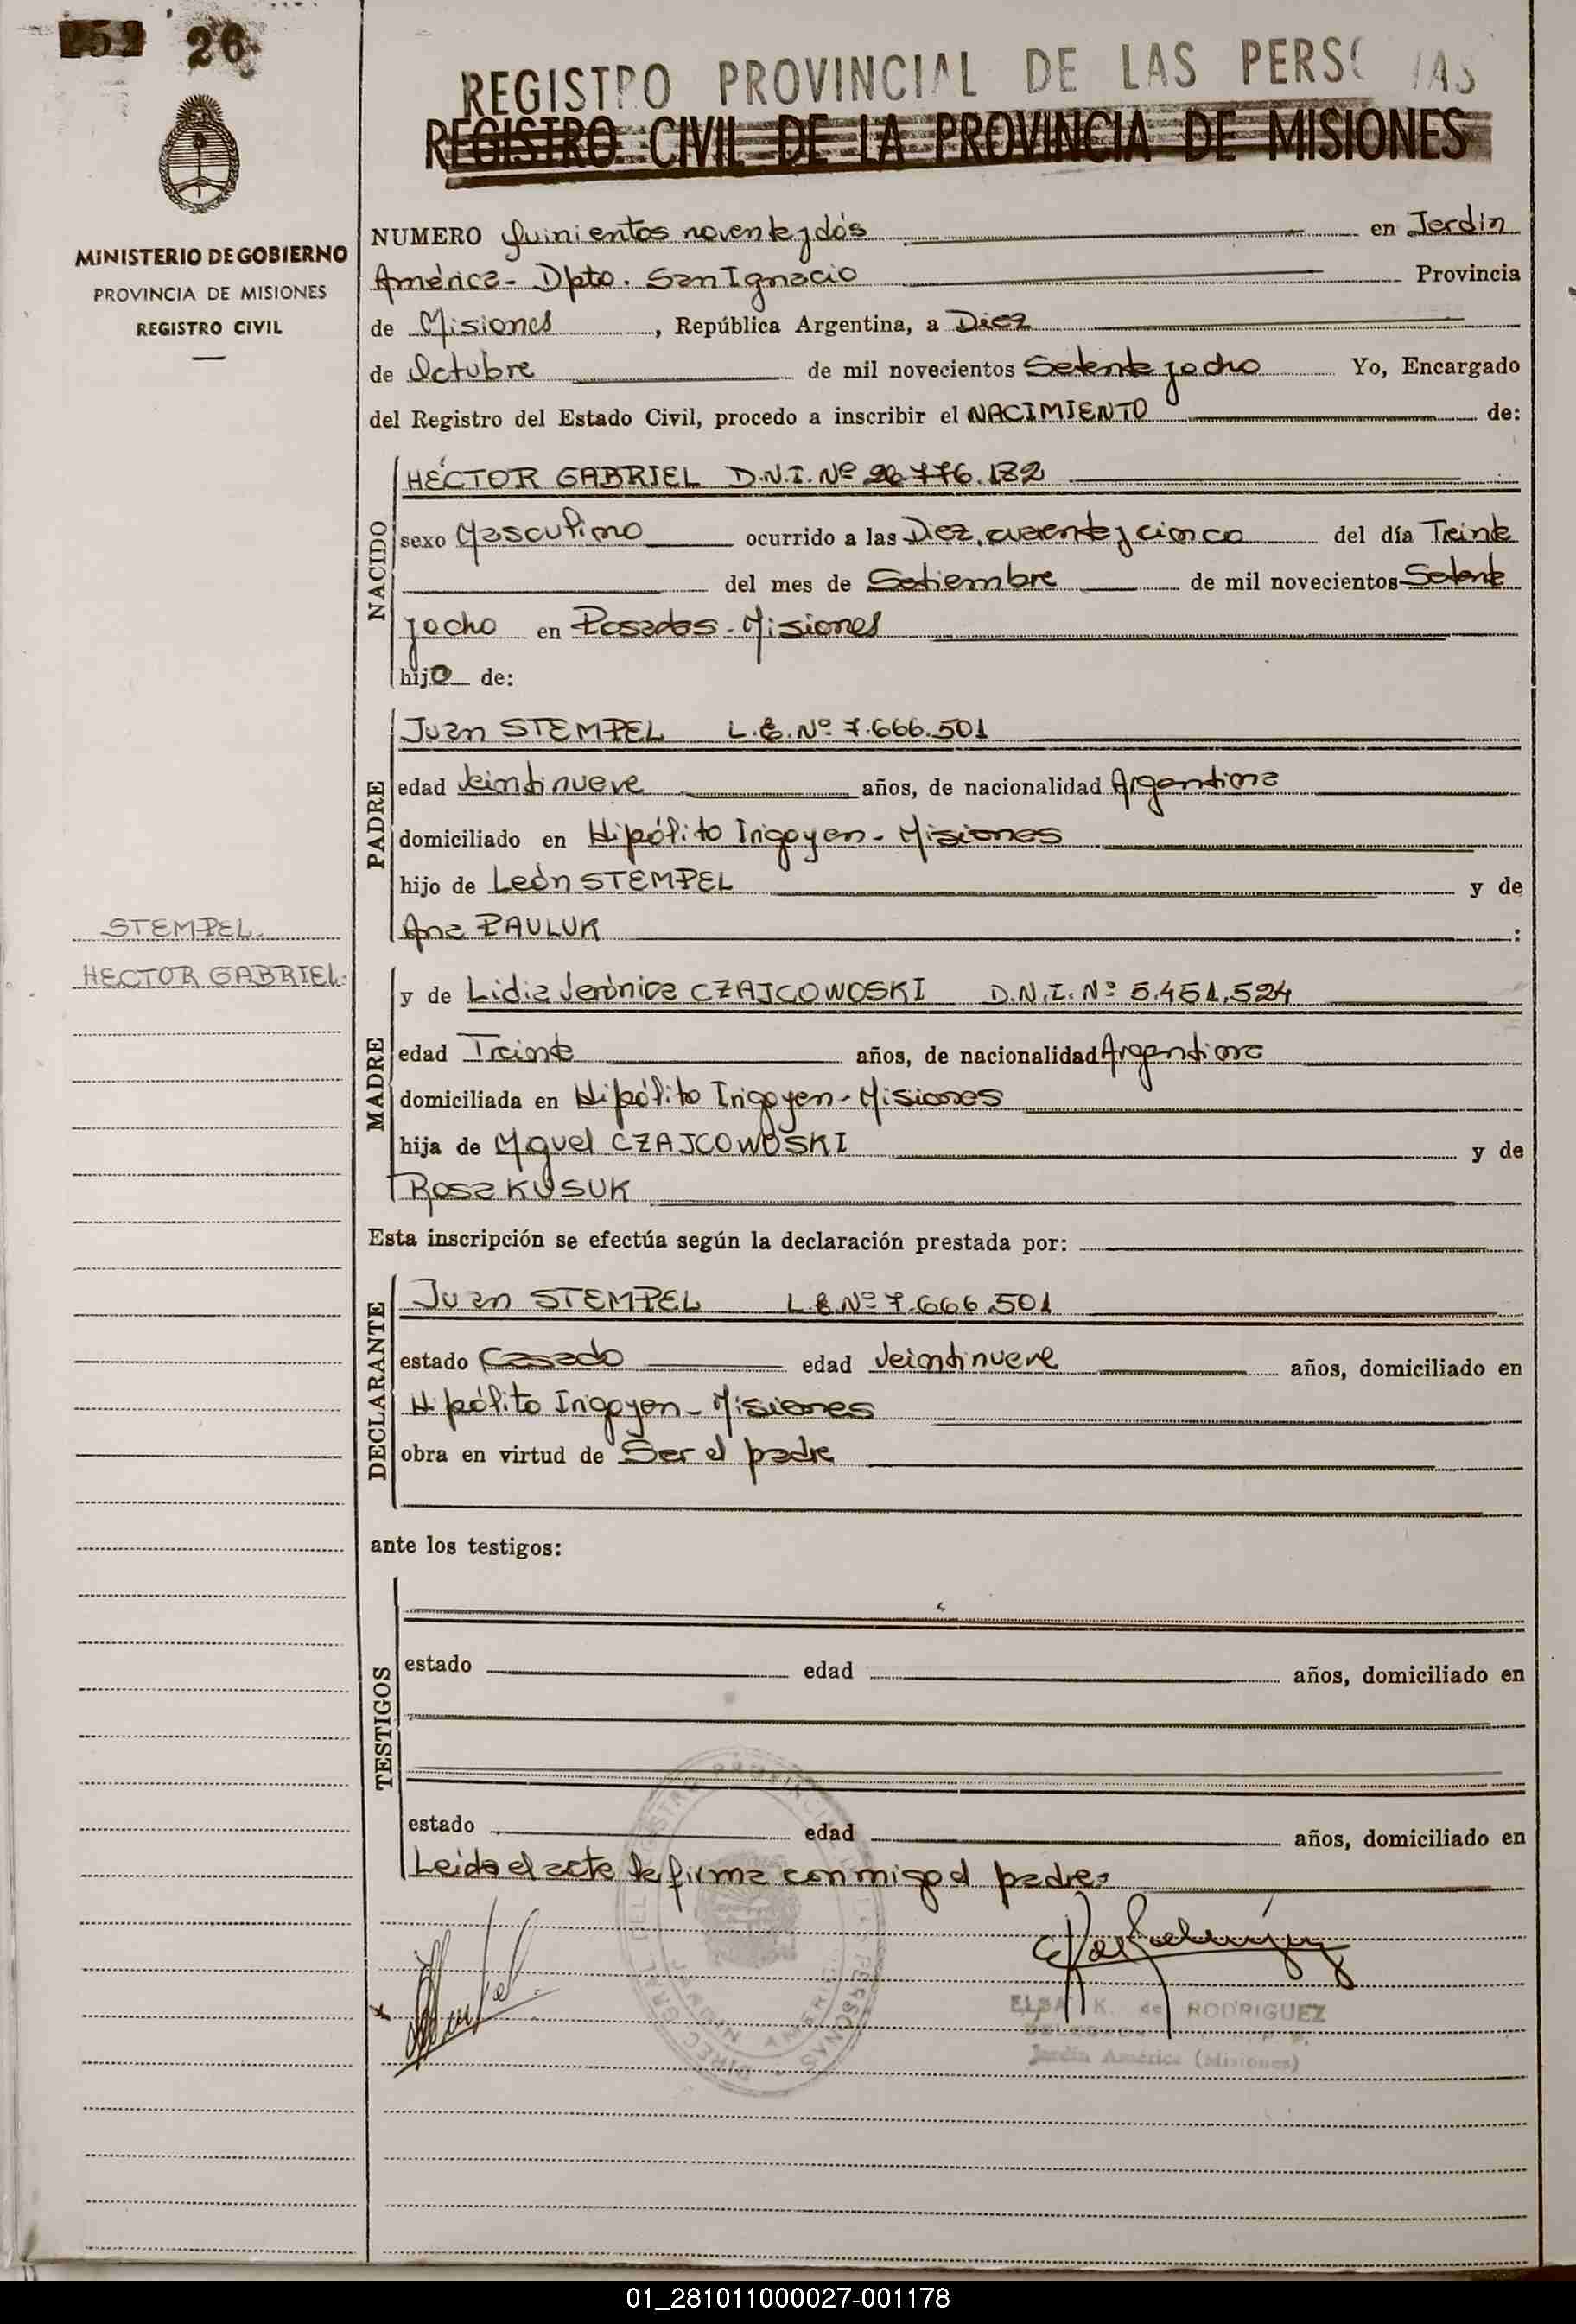 252 26
REGISTRO PROVINCIAL DE LAS PERS AS
REGISTRO CIVIL DE LA PROVINCIA DE MISIONES
MINISTERIO DE GOBIERNO
PROVINCIA DE MISIONES
REGISTRO CIVIL
NUMERO Quinientos noventa y dós en Jardín
América - Dpto. San Ignacio Provincia
de Misiones, República Argentina, a Diez
de Octubre de mil novecientos Setenta y ocho Yo, Encargado
del Registro del Estado Civil, procedo a inscribir el NACIMIENTO de:
NACIDO
HÉCTOR GABRIEL D.N.I. Nº 26.776.182
sexo Masculino ocurrido a las Diez, cuarenta y cinco del día Treinta
del mes de Setiembre de mil novecientos Setenta
y ocho en Posadas - Misiones
hijo de:
PADRE
Juan STEMPEL L.E. Nº 7.666.501
edad Veintinueve años, de nacionalidad Argentina
domiciliado en Hipólito Irigoyen - Misiones
hijo de León STEMPEL y de
Ana PAULUK :
STEMPEL.
HECTOR GABRIEL.
MADRE
y de Lidia Verónica CZAJCOWOSKI D.N.I. Nº 5.451.524
edad Treinta años, de nacionalidad Argentina
domiciliada en Hipólito Irigoyen - Misiones
hija de Miguel CZAJCOWOSKI y de
Rosa KUSUK
Esta inscripción se efectúa según la declaración prestada por:
DECLARANTE
Juan STEMPEL L.E. Nº 7.666.501
estado Casado edad Veintinueve años, domiciliado en
Hipólito Irigoyen - Misiones
obra en virtud de Ser el padre
ante los testigos:
TESTIGOS
estado edad años, domiciliado en
estado edad años, domiciliado en
Leida el acta la firma conmigo el padre.
ELSA K. de RODRIGUEZ
Jardín América (Misiones)
01_281011000027-001178